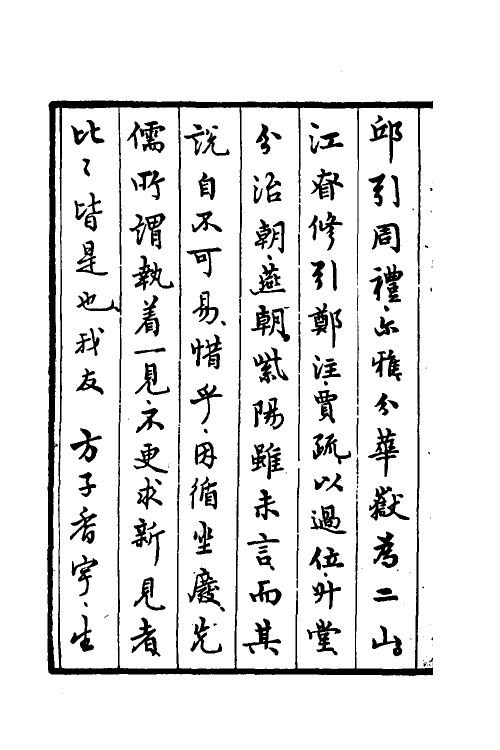 邱引周禮尔雅分華嶽為二山
江督修引鄭注賈疏以過位升堂
分治朝燕朝紫陽雖未言而其
說自不可易惜乎因循坐廢先
儒所謂執着一見不更求新見者
比〻皆是也我友方子香宇生